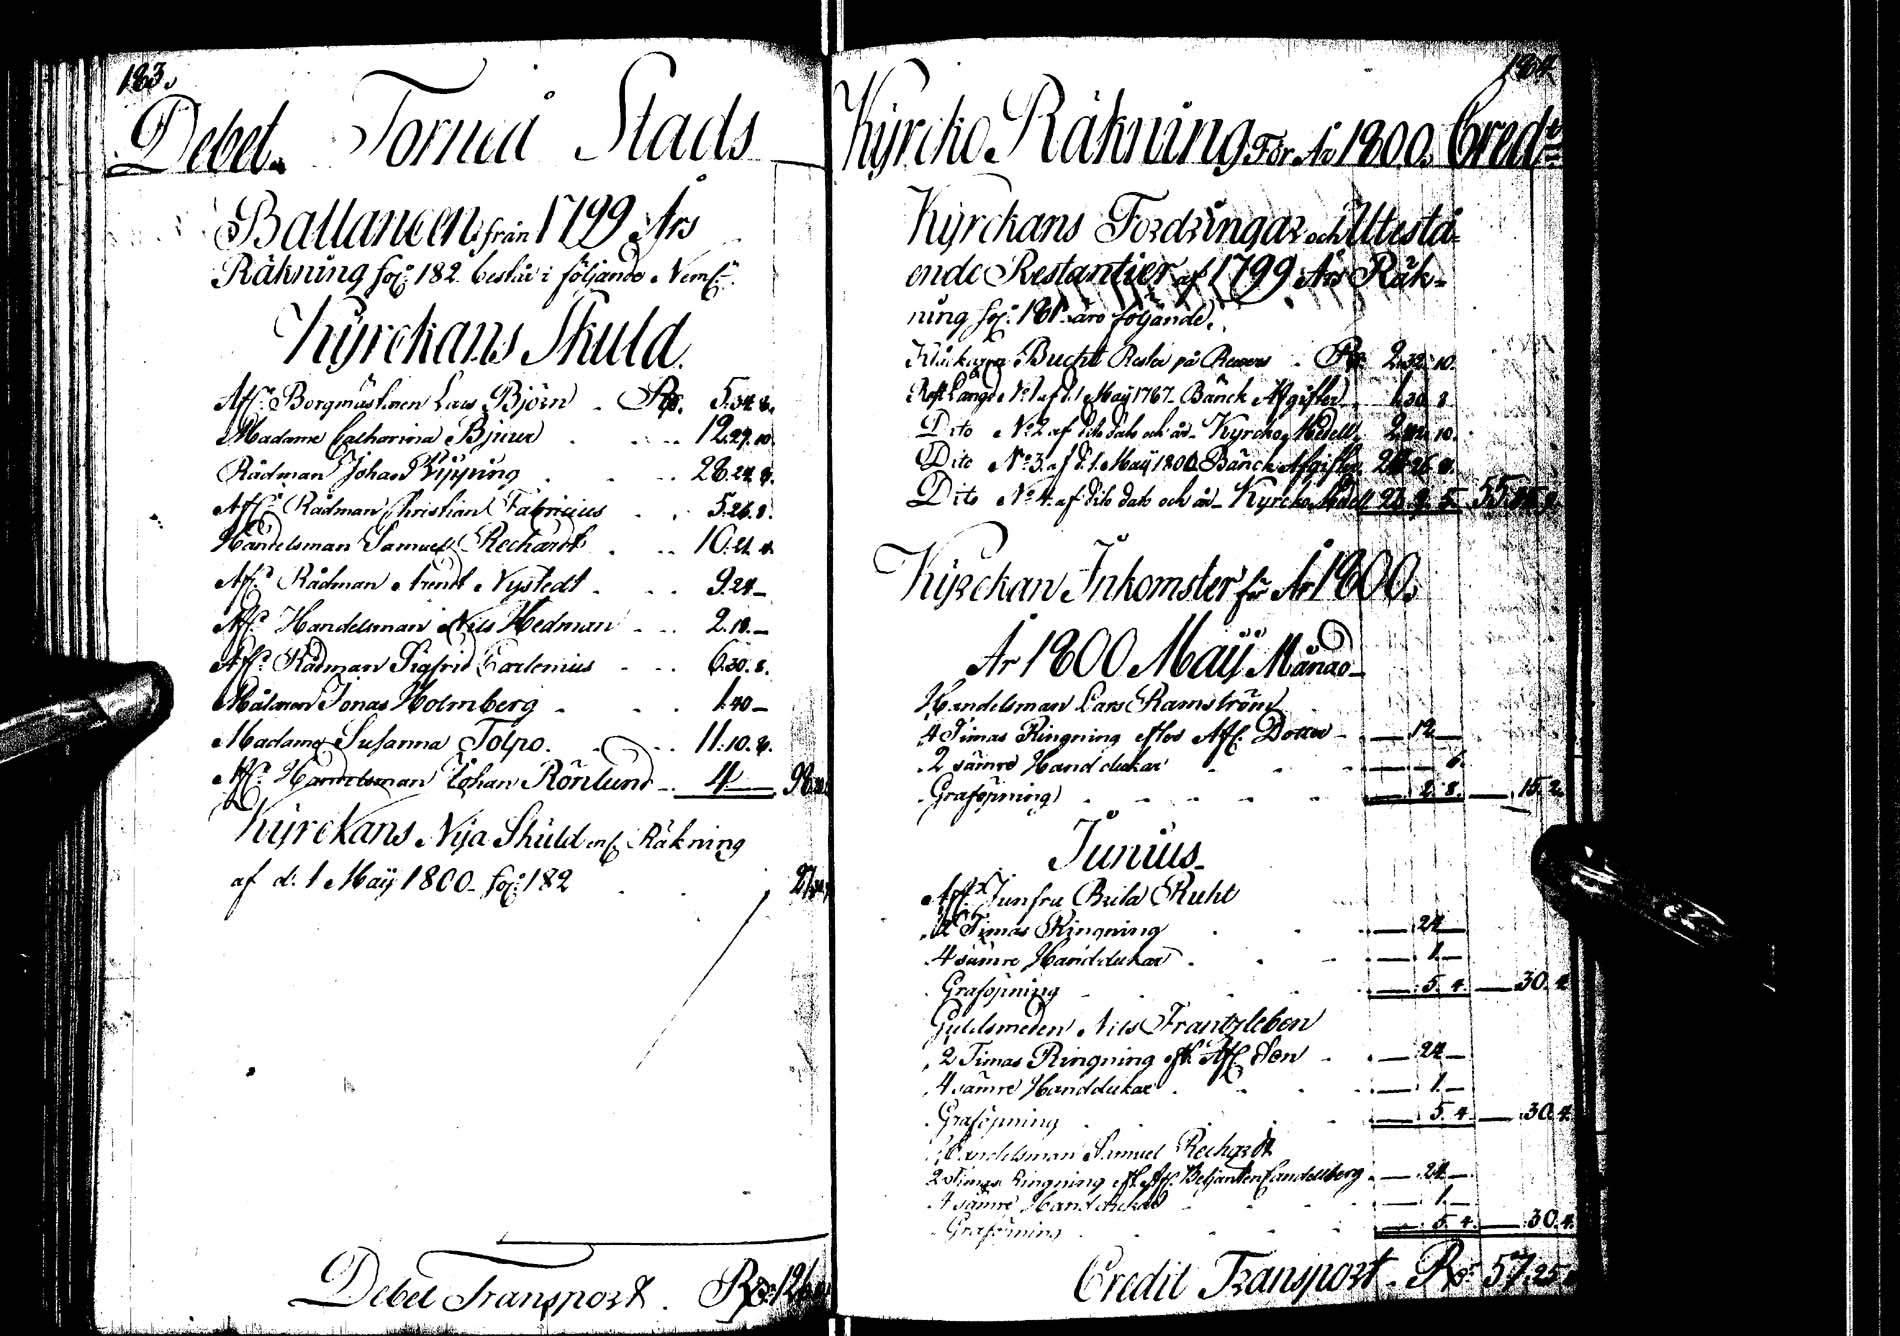 183.
Debet. Torneå Stads
Ballancen från 1799 Års
Räkning fol: 182 består i följande Neml:
Kyrckans Skuld.
Afl: Borgmästaren Lars Björn . Rd. 5.34.8.
Madame Catharina Bjuur . . . 12.29.10.
Rådman Johan Kipping . . . 28.24.8.
Afl: Rådman Christian Fabricius . . 5.26.8.
Handelsman Samuel Rechardt . . . 10.21.4.
Afl: Rådman Arendt Nystedt . . . 9.24.—
Afl: Handelsman Nils Hedman . . . 2.10.—
Afl: Rådman Sigfrid Corlenius . . . 6.30.8.
Målaren Jonas Holmberg . . . 1.40.—
Madame Susanna Tolpo. . . . 11.10.8.
Afl: Handelsman Johan Rönlund . . 4.— 98.
Kyrckans Nya Skuld enl: Räkning
af d: 1 Maÿ 1800. fol: 182 . . 27.
Debet Transport . Rd: 126.
184.
Kyrcko Räkning För År 1800. Credit
Kyrckans Fordringar och Utestå-
ende Restantier af 1799 Års Räk-
ning fol: 181. äro följande.
Bucht Resta på Revers . Rd. 2.32.10.
Rest Längd N:o 1 af d: 1 Maÿ 1767. Bänck Afgifter . 1.30.8.
Dito N:o 2 af dito dato och år. Kyrcko Medell. 2. 10.
Dito N:o 3 af d: 1. Maÿ 1800. Bänck Afgifter 26.
Dito N:o 4. af dito dato och år. Kyrcko Medell 9. 5. 55.
Kyrckan Inkomster för År 1800.
År 1800 Maÿ Månad
Handelsman Lars Ramström
4 Timas Ringning efter Afl: Dotter . — 12 —
2 sämre Handdukar . . — 6.
Graföpning . . . . — 2. 8. — 15. 2.
Junius.
Afl: Jungfru Brita Ruht
2 Timas Ringning . . — 24 —
4 sämre Handdukar . . . — 1. —
Graföpning . . . — 5. 4. — 30. 4.
Guldsmeden Nils Frantzleben
2 Timas Ringning eft: Afl: Son . — 24 —
4 sämre Handdukar . . . — 1. —
Graföpning . . . — 5. 4. — 30. 4.
Handelsman Samuel Rechardt
2 Timas Ringning eft: Afl: Betjenten Candelberg . — 24 —
4 sämre Handdukar . . . — 1. —
Graföpning . . . — 5. 4. — 30. 4.
Credit Transport . Rd: 57.25.